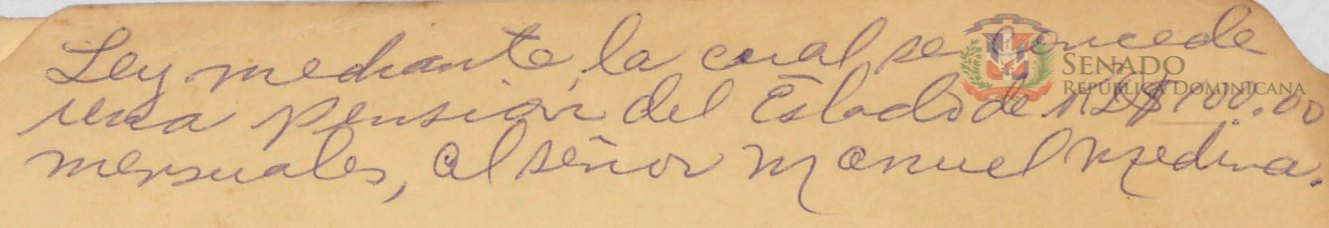 Ley mediante la cual se concede
una pensión del Estado de RD$100.00
mensuales, al señor Manuel Medina.
SENADO
REPÚBLICA DOMINICANA